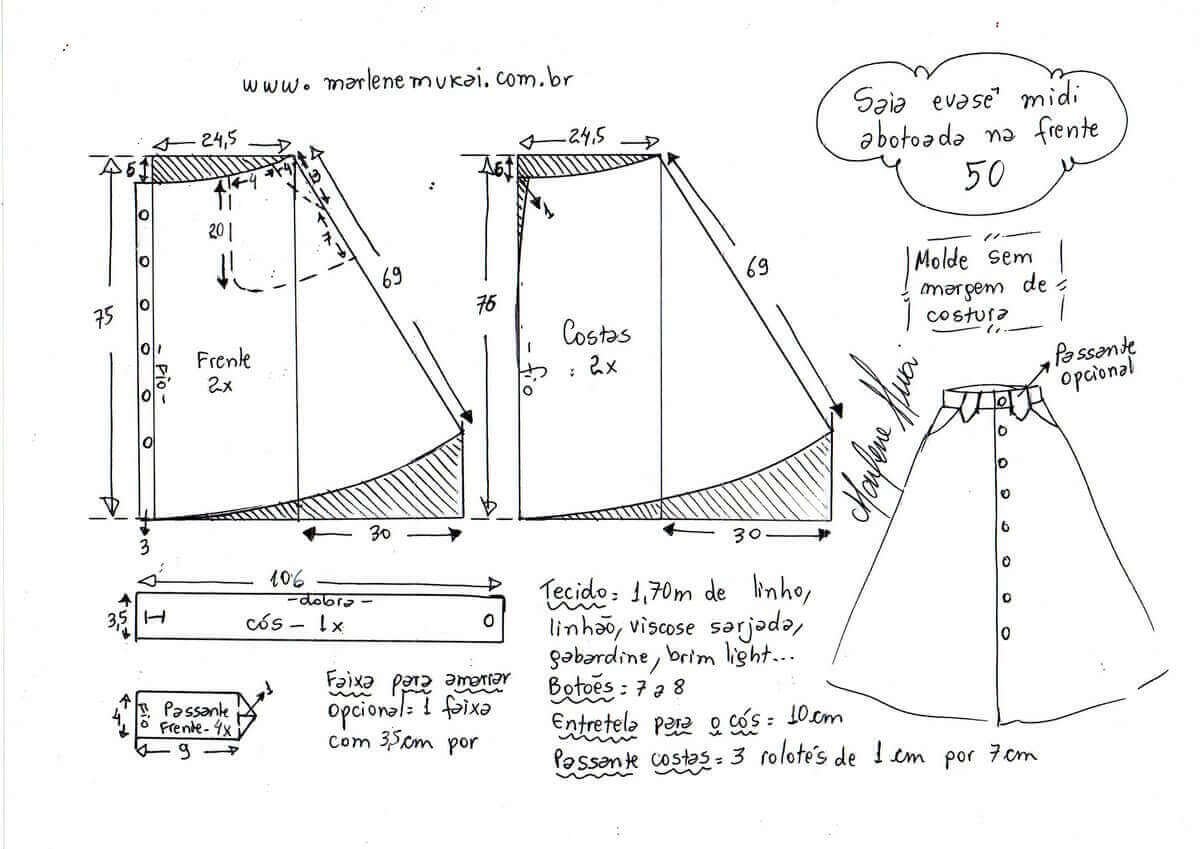 www.marlenemukai.com.br
Saia evasê midi
abotoada na frente
50
Molde sem
margem de
costura
24,5
5
4
4
3
20
7
69
75
Frente
2x
fio
3
30
24,5
5
1
69
75
Costas
2x
fio
30
Marlene Mukai
Passante
opcional
106
3,5
-dobra-
cós - 1x
4
fio
Passante
Frente - 4x
1
9
Faixa para amarrar
opcional = 1 faixa
com 3,5cm por
Tecido = 1,70m de linho,
linhão, viscose sarjada,
gabardine, brim light...
Botões = 7 a 8
Entretela para o cós = 10cm
Passante costas = 3 rolotés de 1 cm por 7cm